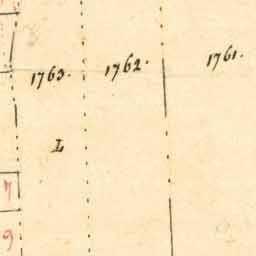 1763. 1762. 1761.
L
7
6